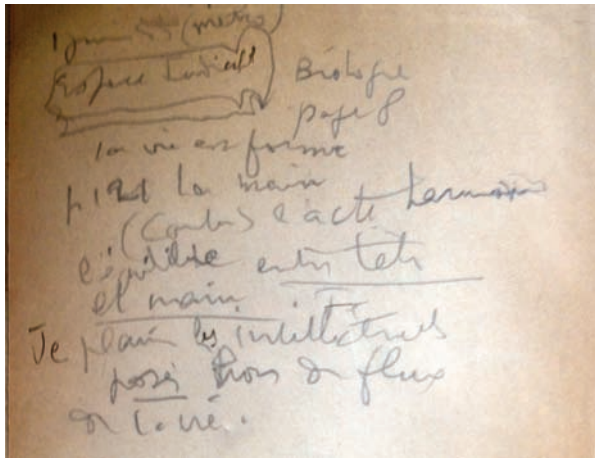 1 juin 55 (métro)
Espace Indicible
Biologie
page 8
la vie est forme
p 121 la main
(Combe) l'acte humain
l'équilibre entre tête
et main
Je plains les intellectuels
posés hors du flux
de la vie.